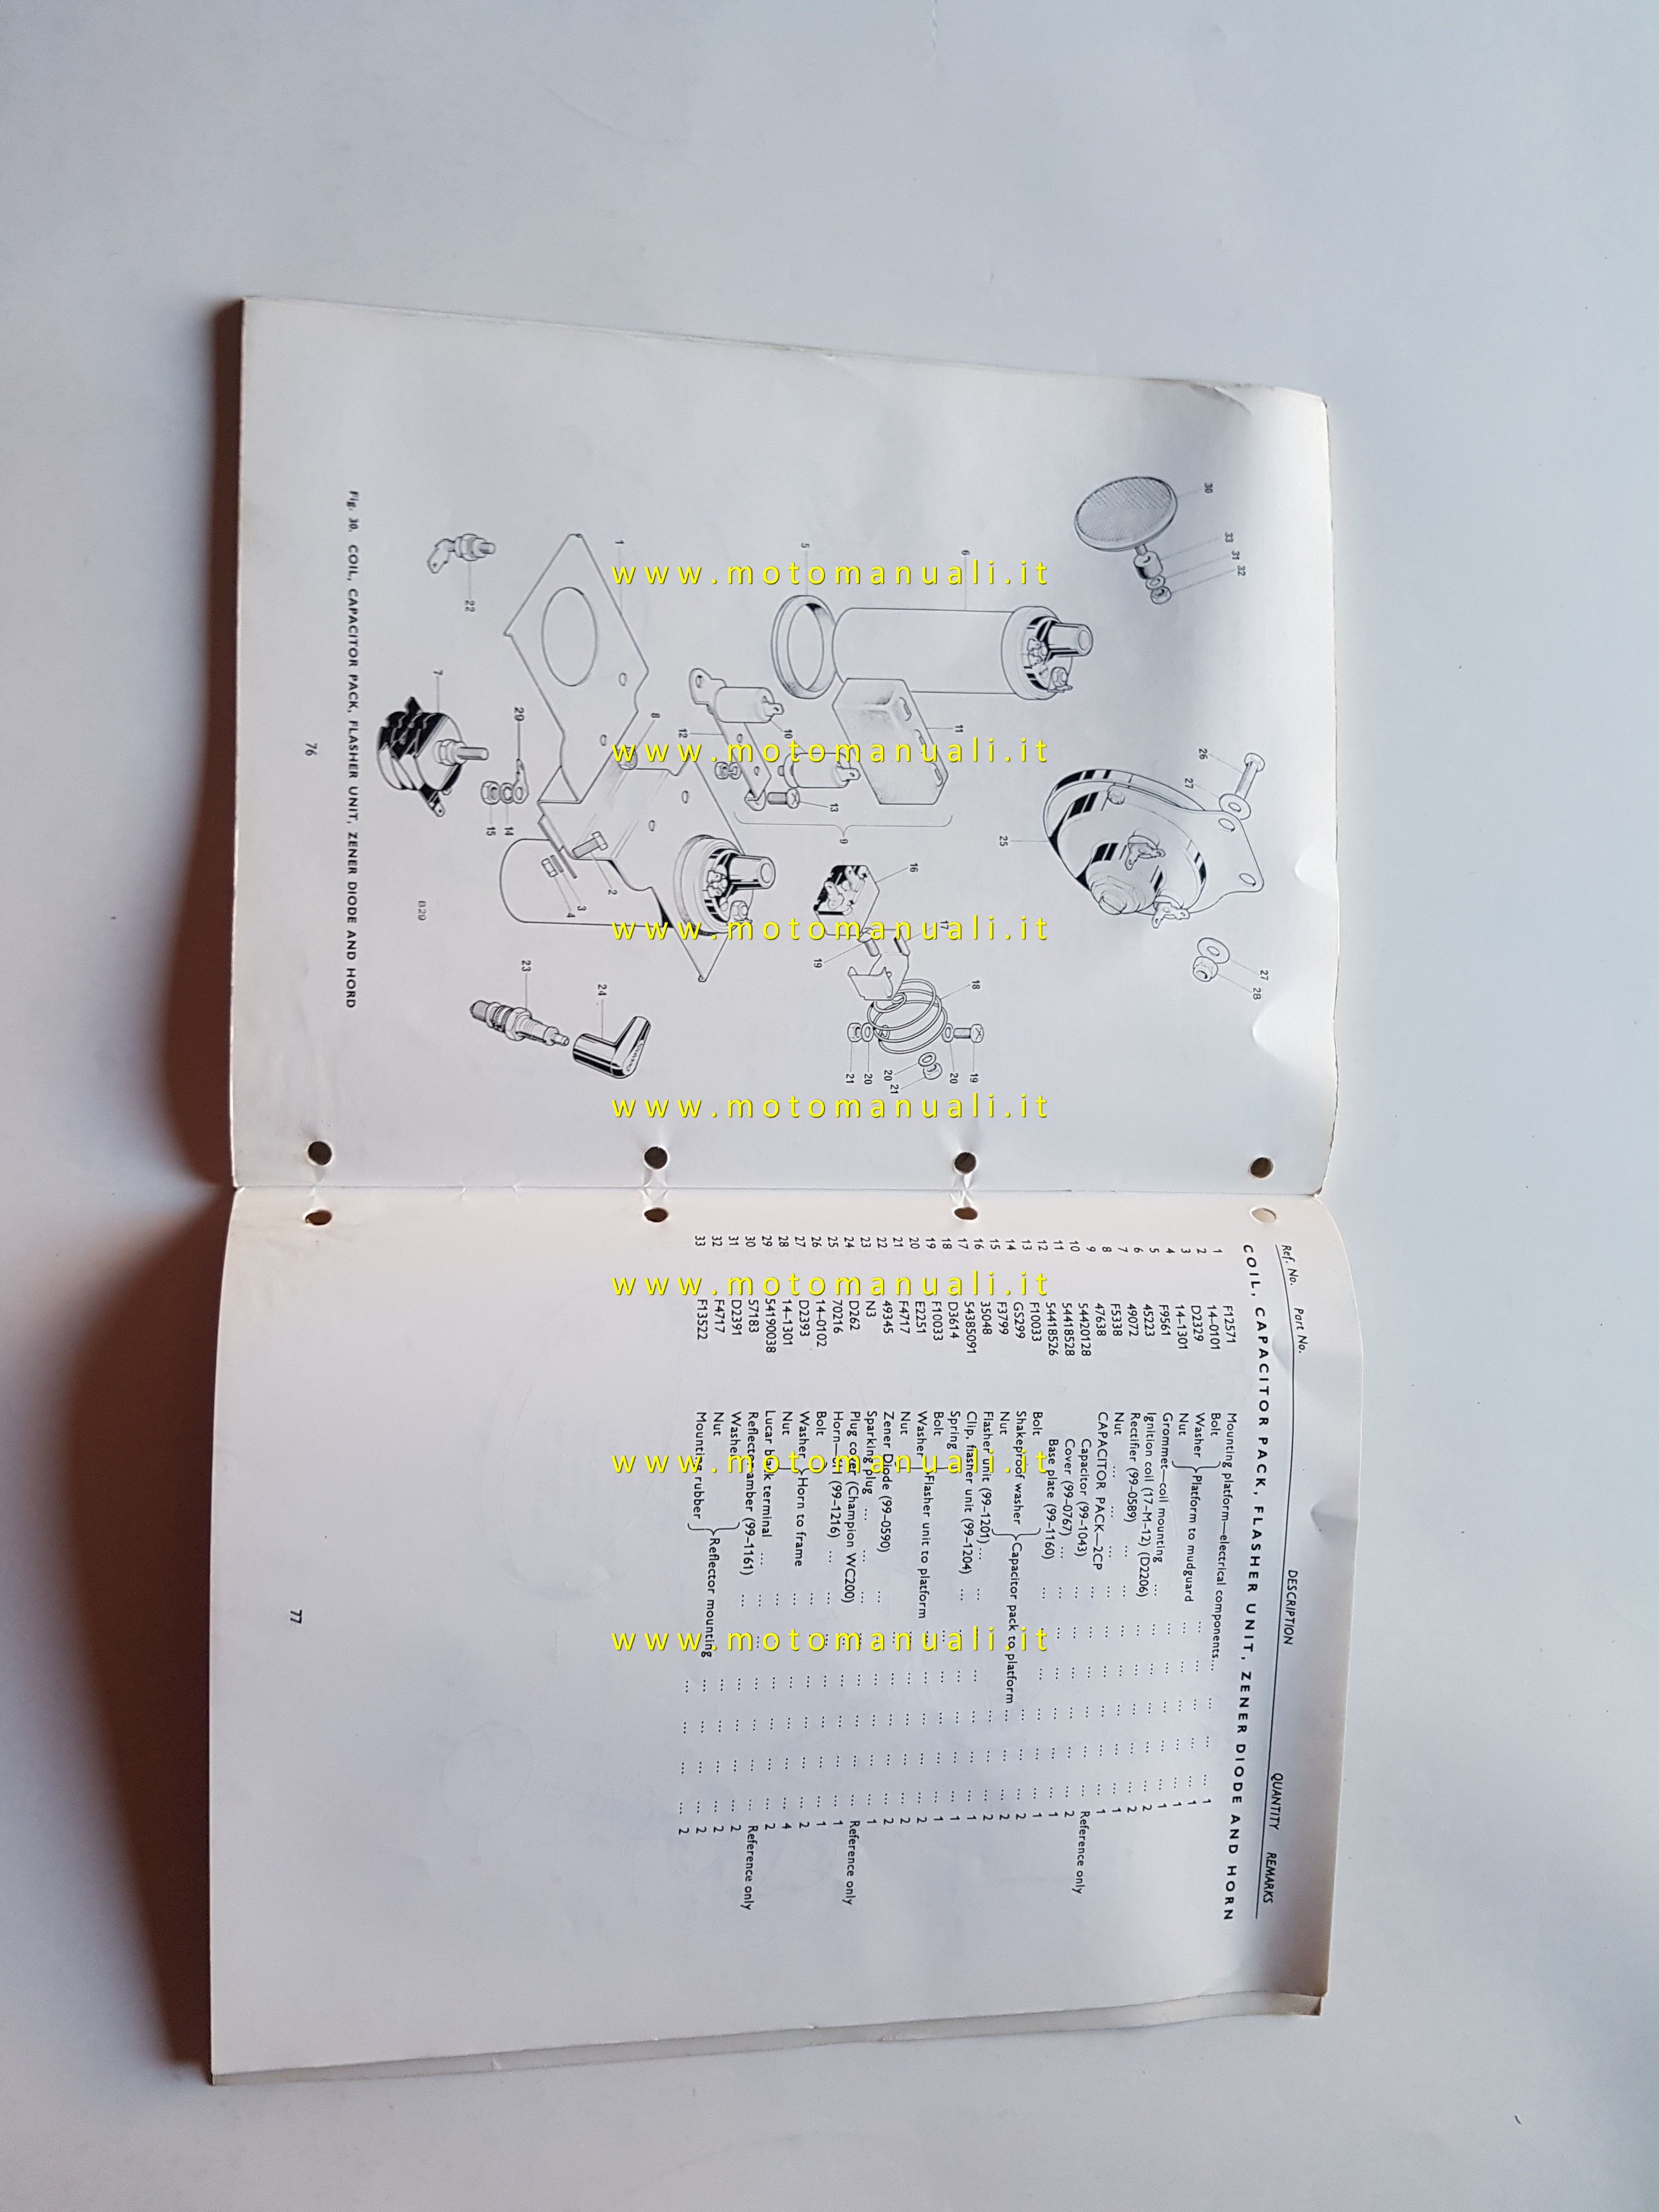 Fig. 30. COIL, CAPACITOR PACK, FLASHER UNIT, ZENER DIODE AND HORD
30
33
31
32
6
5
1
22
26
27
25
11
10
12
13
9
8
7
29
14
15
2
3
4
16
17
18
19
20
21
20
19
20
21
27
28
23
24
B29
76
Ref. No. Part No. DESCRIPTION QUANTITY REMARKS
COIL, CAPACITOR PACK, FLASHER UNIT, ZENER DIODE AND HORN
1 F12571 Mounting platform—electrical components... ... ... ... 1
2 14-0101 Bolt ... ... ... ... 1
3 D2329 Washer } Platform to mudguard ... ... ... ... 1
4 14-1301 Nut ... ... ... ... 1
5 F9561 Grommet—coil mounting ... ... ... ... ... 2
6 45223 Ignition coil (17-M-12) (D2206) ... ... ... ... 2
7 49072 Rectifier (99-0589) ... ... ... ... ... 1
8 F5338 Nut ... ... ... ... ... ... ... 1
9 47638 CAPACITOR PACK—2CP ... ... ... ... ... Reference only
10 54420128 Capacitor (99-1043) ... ... ... ... ... 2
11 54418528 Cover (99-0767) ... ... ... ... ... ... 1
12 54418526 Base plate (99-1160) ... ... ... ... ... 1
13 F10033 Bolt ... ... ... 2
14 GS299 Shakeproof washer } Capacitor pack to platform ... ... ... ... 2
15 F3799 Nut ... ... ... 2
16 35048 Flasher unit (99-1201) ... ... ... ... ... ... 1
17 54385091 Clip, flasher unit (99-1204) ... ... ... ... ... 1
18 D3614 Spring ... ... ... ... ... 1
19 F10033 Bolt ... ... ... ... 2
20 E2251 Washer } Flasher unit to platform ... ... ... ... 2
21 F4717 Nut ... ... ... ... 2
22 49345 Zener Diode (99-0590) ... ... ... ... ... 1
23 N3 Sparking plug ... ... ... ... ... ... ... Reference only
24 D262 Plug cover (Champion WC200) ... ... ... ... 1
25 70216 Horn—6H (99-1216) ... ... ... ... ... ... 1
26 14-0102 Bolt ... ... ... ... ... 2
27 D2393 Washer } Horn to frame ... ... ... ... ... 4
28 14-1301 Nut ... ... ... ... ... 2
29 54190038 Lucar blade terminal ... ... ... ... ... ... Reference only
30 57183 Reflector amber (99-1161) ... ... ... ... ... 2
31 D2391 Washer ... ... ... ... 2
32 F4717 Nut } Reflector mounting ... ... ... ... 2
33 F13522 Mounting rubber ... ... ... ... 2
77
www.motomanuali.it
www.motomanuali.it
www.motomanuali.it
www.motomanuali.it
www.motomanuali.it
www.motomanuali.it
www.motomanuali.it